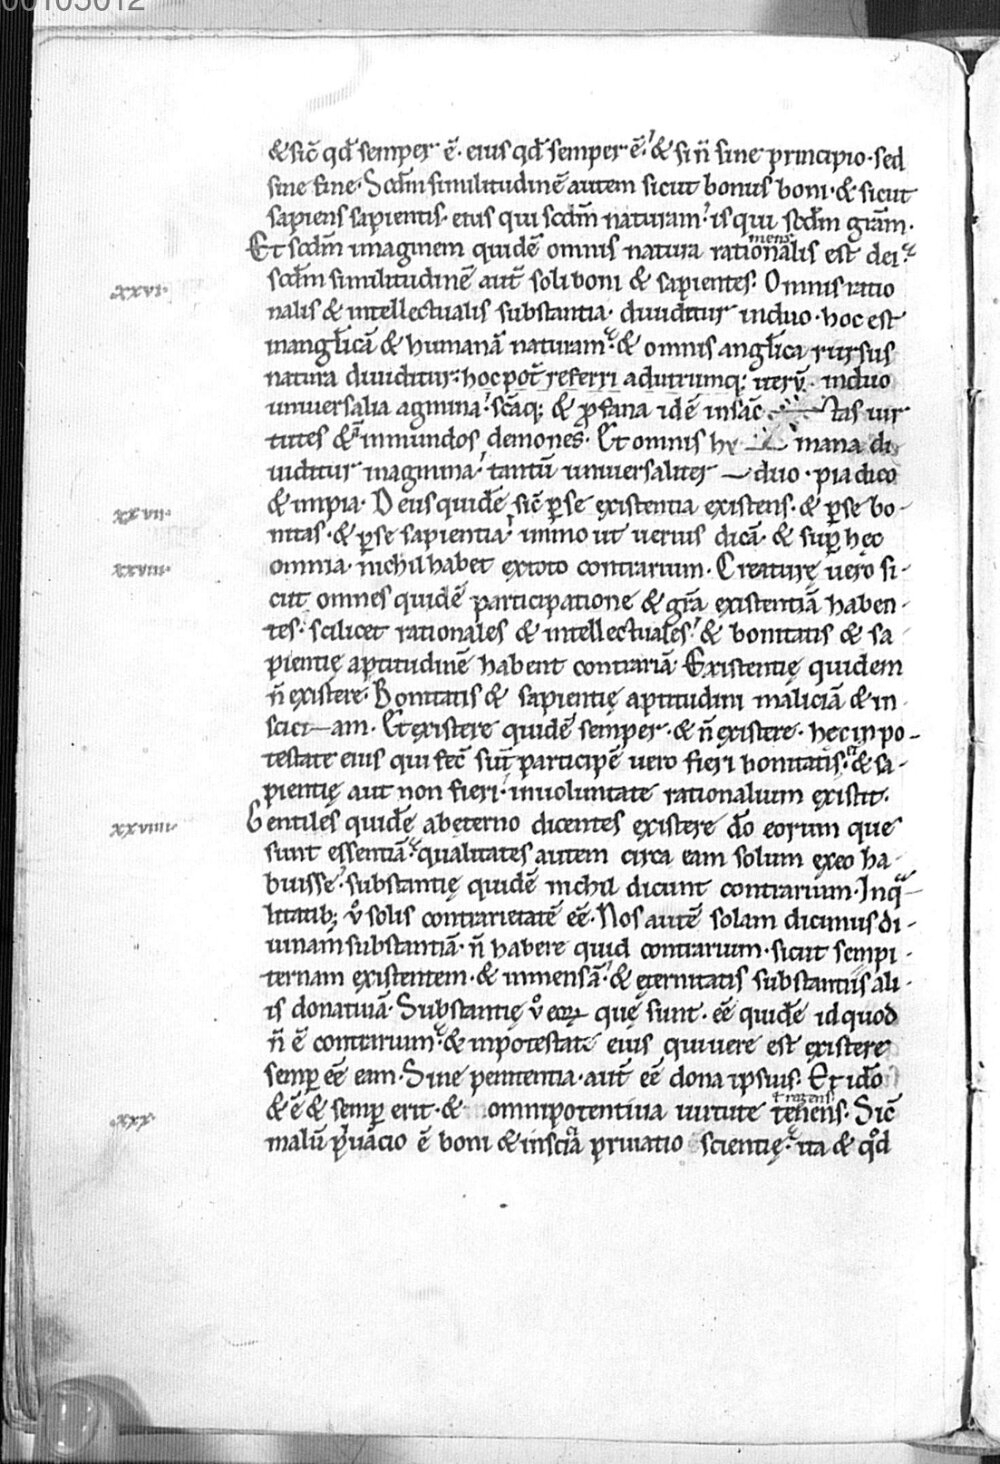 00105012
& sic̄ qd̄ semper ē· eius qd̄ semper ē ⁊ & si n̄ sine principio· sed
sine fine· Scdm̄ similitudinē autem sicut bonus boni· & sicut
sapiens sapientis· eius qui scdm̄ naturam· is qui scdm̄ grām·
Et scdm̄ imaginem quidē omnis natura rationalis est dei·
scdm̄ similitudinē aut̄ soli boni & sapientes· Omnis ratio
xxvi·
nalis & intellectualis substantia· diuiditur induo· hoc est
inangl̄icā & humanā naturam· & omnis angl̄ica rursus
natura diuiditur· hoc pot̄ referri adutrumq; induo
uniuersalia agmina· sc̄aq; & ꝓfana idē insāc tas uir
tutes & inmundos demones· Et omnis hu mana di
uiditur inagmina· tantū uniuersaliter duo· pia dico
& impia· Deus quidē sic̄ ꝑse existentia existens· & ꝑse bo-
xxvii·
nitas· & ꝑse sapientia· immo ut uerius dicā· & suꝑ hęc
omnia· nichil habet extoto contrarium· Creaturę uero si-
xxviii·
cut omnes quidē participatione & grā existentiā haben-
tes· scilicet rationales & intellectuales· & bonitatis & sa
pientię aptitudinē habent contrariā· Existentię quidem
n̄ existere· Bonitatis & sapientię aptitudini maliciā & in
scici—am· Et existere quidē semper· & n̄ existere· hec in po-
testate eius qui fec̄ sut̄ participē uero fieri bonitatis· & sa-
pientię aut non fieri· inuoluntate rationalium existit·
Gentiles quidē abeterno dicentes existere dō eorum que
xxviiii·
sunt essentiā· qualitates autem circa eam solum exeo ha-
buisse· substantię quidē nichil dicunt contrarium· Inqa—
litatib; ů solis contrarietatē eē· Nos autē solam dicimus di-
uinam substantiā· n̄ habere quid contrarium· sicut sempi-
ternam existentem· & inmensā· & ęternitatis substantiis ali-
is donatiuā· Substantię ů eoꝝ quę sunt· eē quidē id quod
n̄ ē contrarium· & inpotestate eius qui uere est existere
semꝑ eē eam· Sine penitentia· aut̄ eē dona ipsius· Et idō
& ē & semꝑ erit· & omnipotentiua uirtute tenens· Sic̄
xxx·
malū pⁱuacio ē boni & insciā priuatio scientię· ita & qd̊